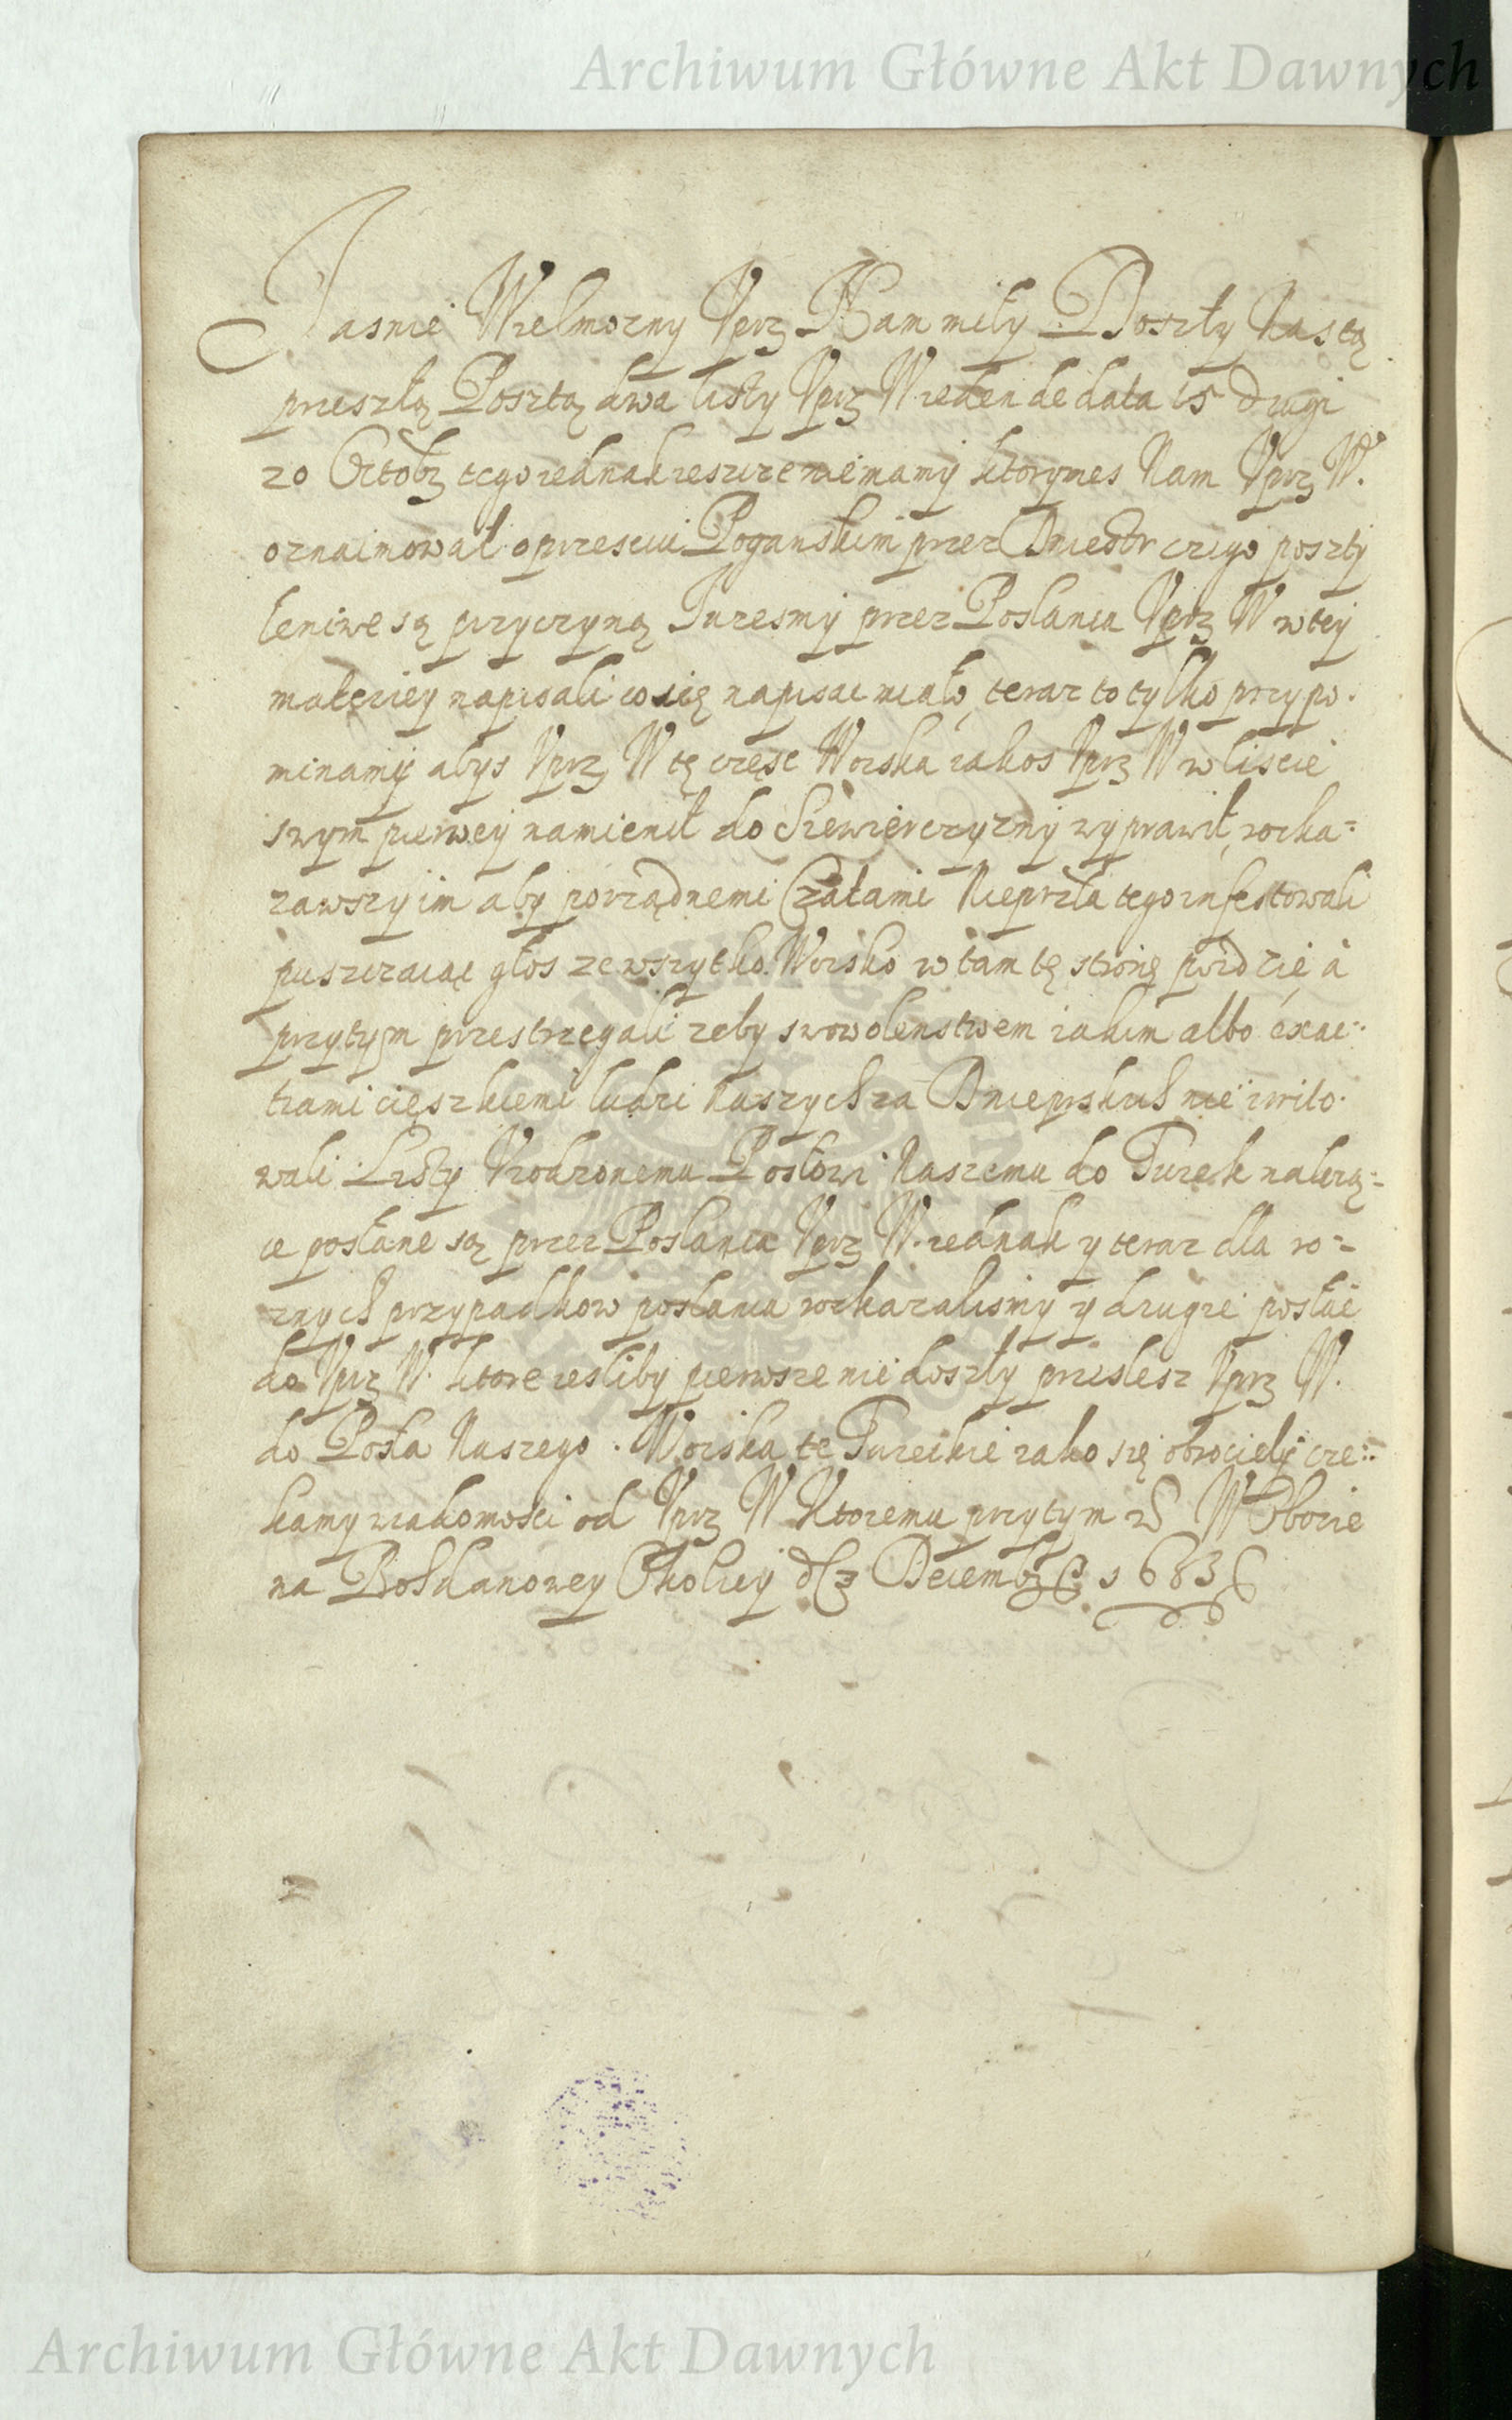 Archiwum Główne Akt Dawnych
Jasnie Wielmozny Vprz Pan miły Doszły Nas tą
przeszłą Posztą dwa listy Vprz W ieden de data 15 drugi
20 Octobr tego iednak ieszcze nie mamy ktorymes Nam Vprz W.
oznaimował o przesciu Poganskim przez Dniestr czego poszty
leniwe są przyczyną Tuzesmy przez Poslanca Vprz W w tey
materiey napisali co się napisac miało, teraz to tylko przypo-
minamy abys Vprz W tę częsc Woyska iakos Vprz W w liscie
swym pierwey namienił do Siewierczyzny wyprawił, roska=
zawszy im aby porządnemi Czatami Nieprzla tego infestowali
puszczaiąc głos ze wszytko Woysko w tamtę stronę poidzie à
przytym przestrzegali zeby swowolenstwem iakim albo éxac=
tiami cięszkiemi ludzi Naszych za Dnieprskich nie irrito-
wali Listy Vrodzonemu Posłowi Naszemu do Turek należą=
ce posłane są przez Poslanca Vprz W. iednak y teraz dla ro=
znych przypadkow posłania roskazalismy y drugie posłac
do Vprz W. ktore iesliby pierwsze nie doszły przeslesz Vprz W.
do Posła Naszego. Woiska te Tureckie iako się obrocieły cze=
kamy wiadomosci od Vprz W Ktoremu przytym
W Oborze
na Bohdanowey Okolicy d 3 Decembr 1683
Archiwum Główne Akt Dawnych